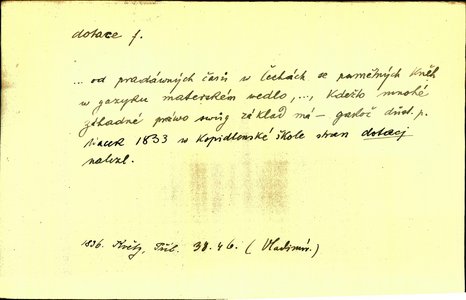 dotace f.
... od pradáwných časů w Čechách se pamětných Kněh
w gazyku materském wedlo, ..., kdežto mnohé
záhadné práwo swůg základ má – gakož důst. p.
1833 w Kopidlenské škole stran dotacj
nalezl.
1836. Květy, Příl. 38. 46. (Vladimír.)